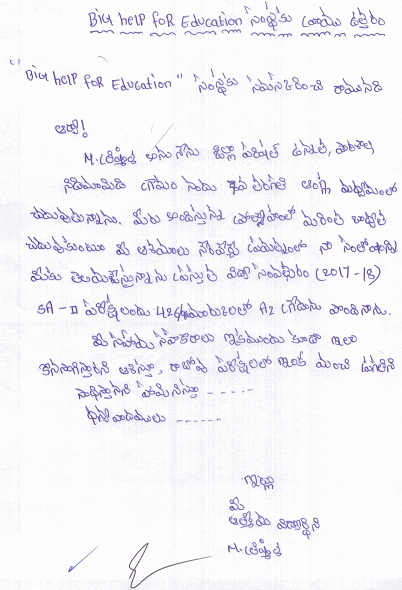 Big help for Education సంస్థకు వ్రాయు ఉత్తరం
"Big help for Education" సంస్థకు నమస్కరించి వ్రాయునది
ఆర్యా!
M. అను నేను జిల్లా పరిషత్ ఉన్నత పాఠశాల,
నిడిమామిడి గ్రామం నందు వ తరగతి ఆంగ్ల మాధ్యమంలో
చదువుతున్నాను. మీరు అందిస్తున్న ప్రోత్సాహంతో మరింత బాధ్యతగా
చదువుకుంటూ మీ ఆశయాలు నెరవేర్చే సమయంలో నా సంతోషాన్ని
మీకు తెలియజేస్తున్నాను ప్రస్తుత విద్యా సంవత్సరం (2017-18)
SA-II పరీక్షలందు మార్కులతో A2 గ్రేడును పొందినాను.
మీ సహాయ సహకారాలు ఇకముందు కూడా ఇలా
కొనసాగిస్తారని ఆశిస్తూ, రాబోవు పరీక్షలలో ఇంకా మంచి ప్రగతిని
సాధిస్తానని హామీనిస్తూ -----
ధన్యవాదములు ------
ఇట్లు
మీ
విద్యార్థిని
M.